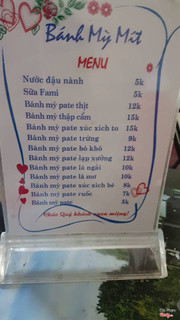 Bánh Mỳ Mít
MENU
Nước đậu nành 5k
Sữa Fami 5k
Bánh mỳ pate thịt 12k
Bánh mỳ thập cẩm 15k
Bánh mỳ pate xúc xích to 15k
Bánh mỳ pate trứng 9k
Bánh mỳ pate bò khô 12k
Bánh mỳ pate lạp xưởng 12k
Bánh mỳ pate lá ngải 10k
Bánh mỳ pate lá mơ 10k
Bánh mỳ pate xúc xích bé 8k
Bánh mỳ pate ruốc 7k
Bánh mỳ pate 5k
Chúc Quý khách ngon miệng!